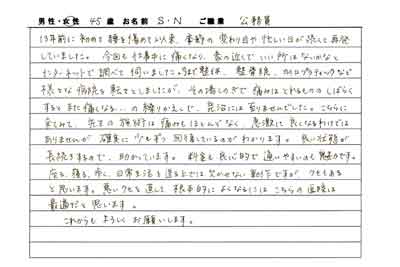 男性・女性 45歳 お名前 S・N ご職業 公務員
13年前に初めて腰を傷めて以来、季節の変わり目や忙しい日が続くと再発
していました。今回も仕事中に痛くなり、家の近くでいい所はないかなと
インターネットで調べて伺いました。今まで整体、整骨院、カイロプラティックなど
様々な病院を転々としましたが、その場しのぎで痛みはとれるもののしばらく
するとまた痛くなる…の繰りかえしで、完治には至りませんでした。こちらに
来てみて、先生の施術は痛みもほとんどなく、急激に良くなるわけでは
ありませんが確実に少しずつ回復しているのがわかります。良い状態が
長続きするので、助かっています。料金も良心的で通いやすいのも魅力です。
座る、寝る、歩く、日常生活を送る上では欠かせない動作ですが、クセもある
と思います。悪いクセを直して根本的によくなるにはこちらの直接は
最適だと思います。
これからもよろしくお願いします。